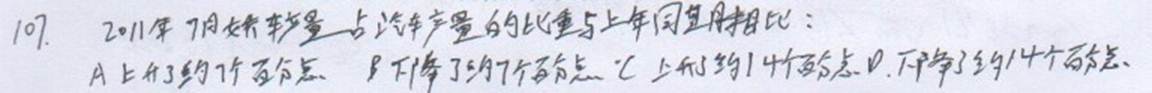 107. 2011年7月轿车产量占汽车产量的比重与上年同期相比：
A上升了约7个百分点 B下降了约7个百分点 C上升了约14个百分点 D.下降了约14个百分点.